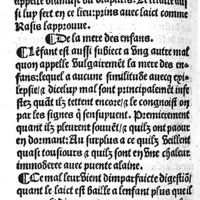 si luy fert en ce lieu: prins auec laict comme
Rasis lapprouue.
De la mere des enfans.
Lēfant est aussi subiect a vng autre mal
quon appelle vulgairemēt la mere des en-
fans: lequel a aucune similitude auecq exi-
lepsie/ & diceluy mal sont principalement infe-
stez quāt ilz tettent encore/ & le congnoist on
par les signes q̄ sensuyuent. Premierement
quant ilz pleurent souuēt/ & quilz ont paour
en dormant: Au surplus a ce quilz Seillent
quasi tousiours & quilz sont en vne chaleur
immoderee auec puente alaine.
Ce mal leur vient dimparfaicte digestiō/
quant le laict est baille a lenfant plus queil